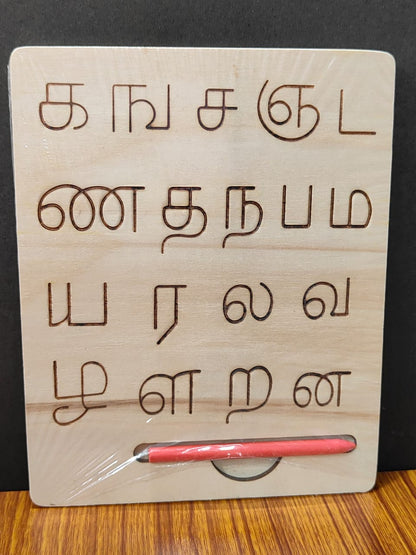 க ங ச ஞ ட
ண த ந ப ம
ய ர ல வ
ழ ள ற ன